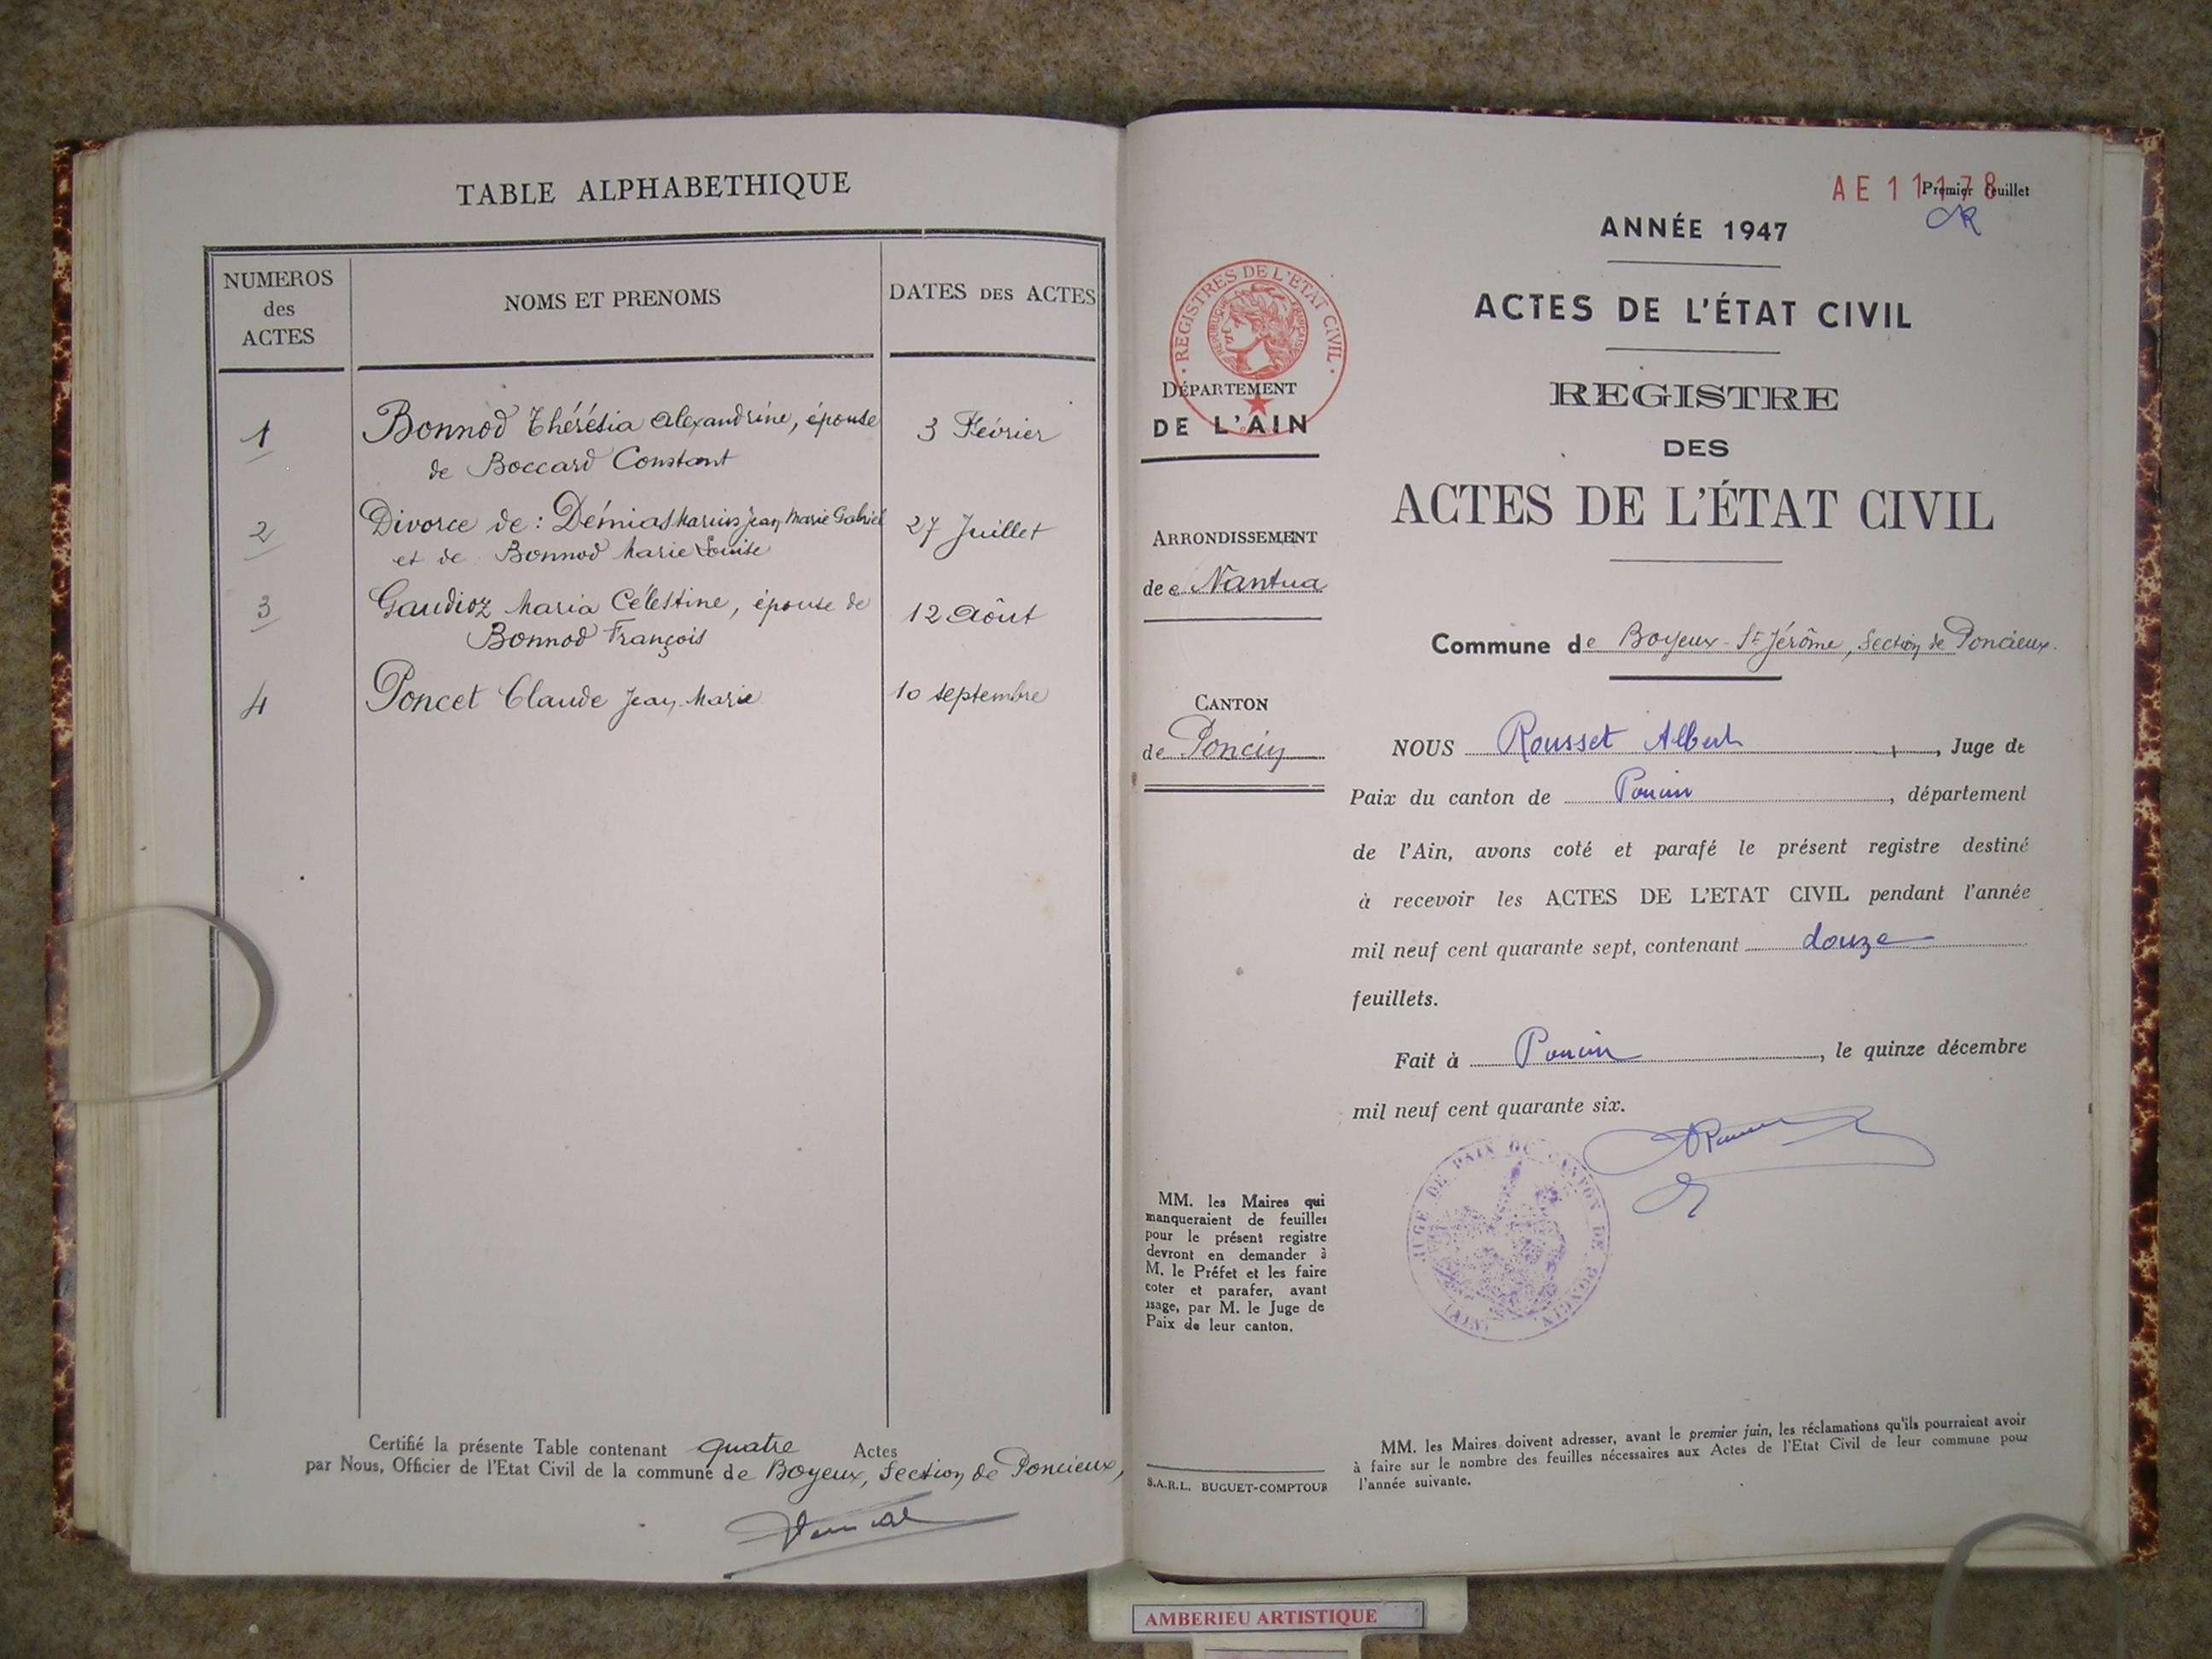 TABLE ALPHABETHIQUE
NUMEROS
des
ACTES
NOMS ET PRENOMS
DATES DES ACTES
1
Bonnod Thérésia Alexandrine, épouse
3 Février
de Boccard Constant
2
Divorce de : Démias Marius Jean Marie Gabriel
27 Juillet
et de Bonnod Marie Louise
3
Gaudioz Maria Célestine, épouse de
12 Aôut
Bonnod François
4
Poncet Claude Jean Marie
10 septembre
Certifié la présente Table contenant quatre Actes
par Nous, Officier de l'Etat Civil de la commune de Boyeux, Section de Poncieux,
AE 11178
Premier feuillet
ANNÉE 1947
ACTES DE L'ÉTAT CIVIL
REGISTRE
DES
ACTES DE L'ÉTAT CIVIL
REGISTRES DE L'ETAT CIVIL
REPUBLIQUE FRANÇAISE
DÉPARTEMENT
DE L'AIN
ARRONDISSEMENT
de e Nantua
CANTON
de Poncin
Commune de Boyeux-St Jérôme, Section de Poncieux.
NOUS Rousset Albert, Juge de
Paix du canton de Poncin, département
de l'Ain, avons coté et parafé le présent registre destiné
à recevoir les ACTES DE L'ETAT CIVIL pendant l'année
mil neuf cent quarante sept, contenant douze
feuillets.
Fait à Poncin, le quinze décembre
mil neuf cent quarante six.
JUGE DE PAIX DU CANTON DE PONCIN
(AIN)
MM. les Maires qui
manqueraient de feuilles
pour le présent registre
devront en demander à
M. le Préfet et les faire
coter et parafer, avant
usage, par M. le Juge de
Paix de leur canton.
S.A.R.L. BUGUET-COMPTOUR
MM. les Maires doivent adresser, avant le premier juin, les réclamations qu'ils pourraient avoir
à faire sur le nombre des feuilles nécessaires aux Actes de l'Etat Civil de leur commune pour
l'année suivante.
AMBERIEU ARTISTIQUE